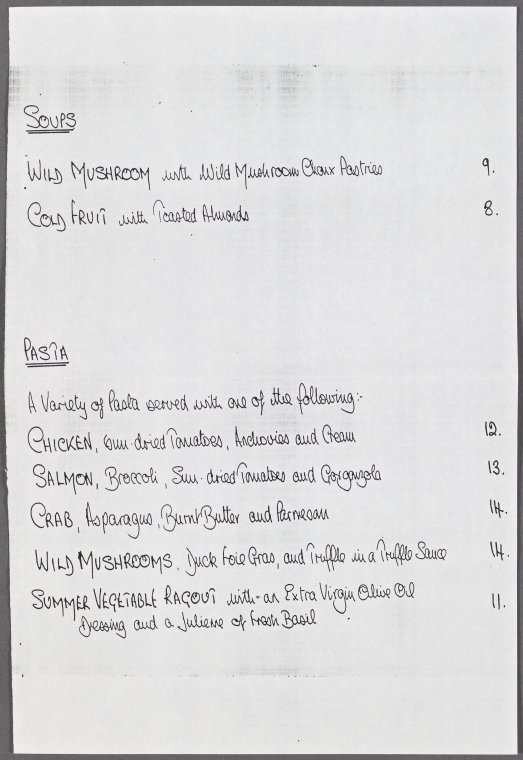 SOUPS
WILD MUSHROOM with Wild Mushroom Choux Pastries 9.
COLD FRUIT with Toasted Almonds 8.
PASTA
A Variety of Pasta served with one of the following:-
CHICKEN, Sun-dried Tomatoes, Anchovies and Cream 12.
SALMON, Broccoli, Sun-dried Tomatoes and Gorgonzola 13.
CRAB, Asparagus, Burnt Butter and Parmesan 14.
WILD MUSHROOMS, Duck Foie Gras, and Truffle in a Truffle Sauce 14.
SUMMER VEGETABLE RAGOUT with an Extra Virgin Olive Oil 11.
Dressing and a Julienne of Fresh Basil